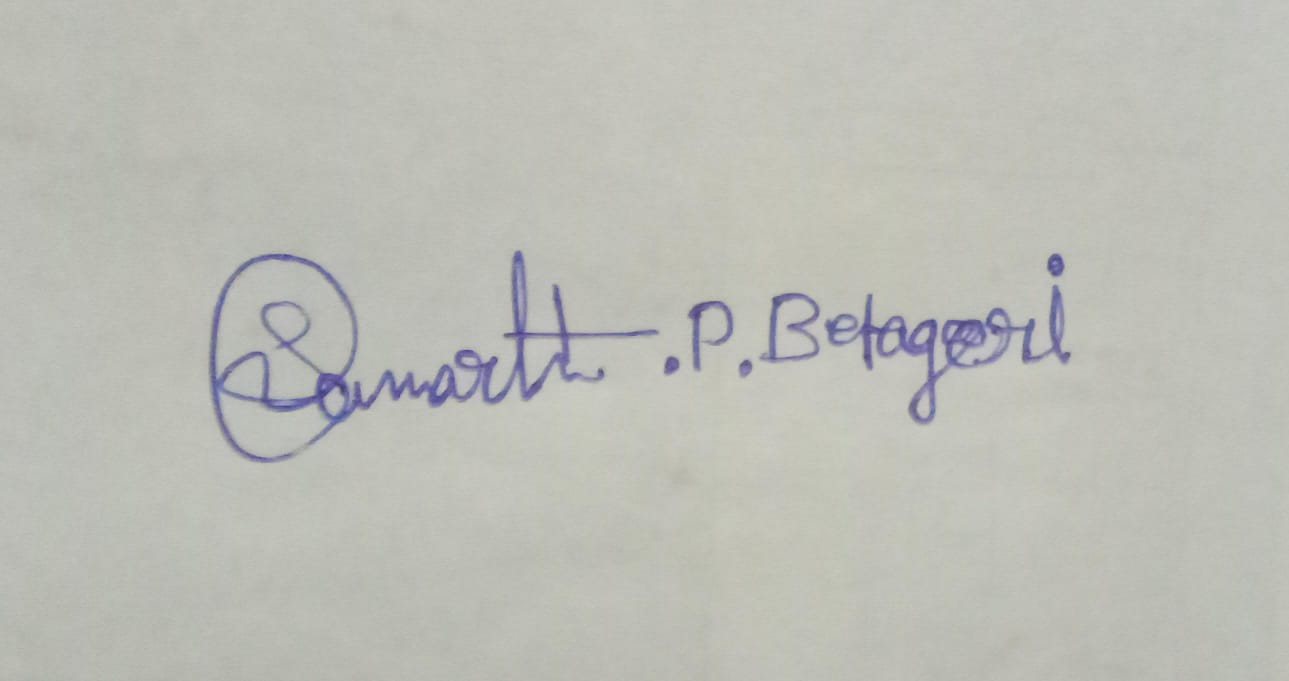 Samarth .P. Betageri